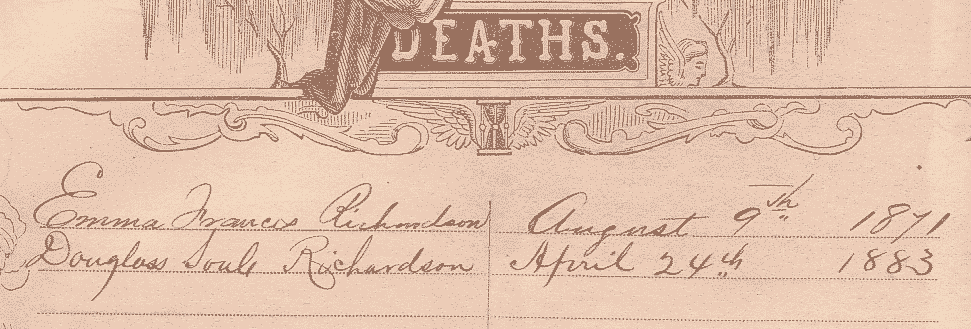 DEATHS.
Emma Frances Richardson August 9th 1871
Douglass Soule Richardson April 24th 1883